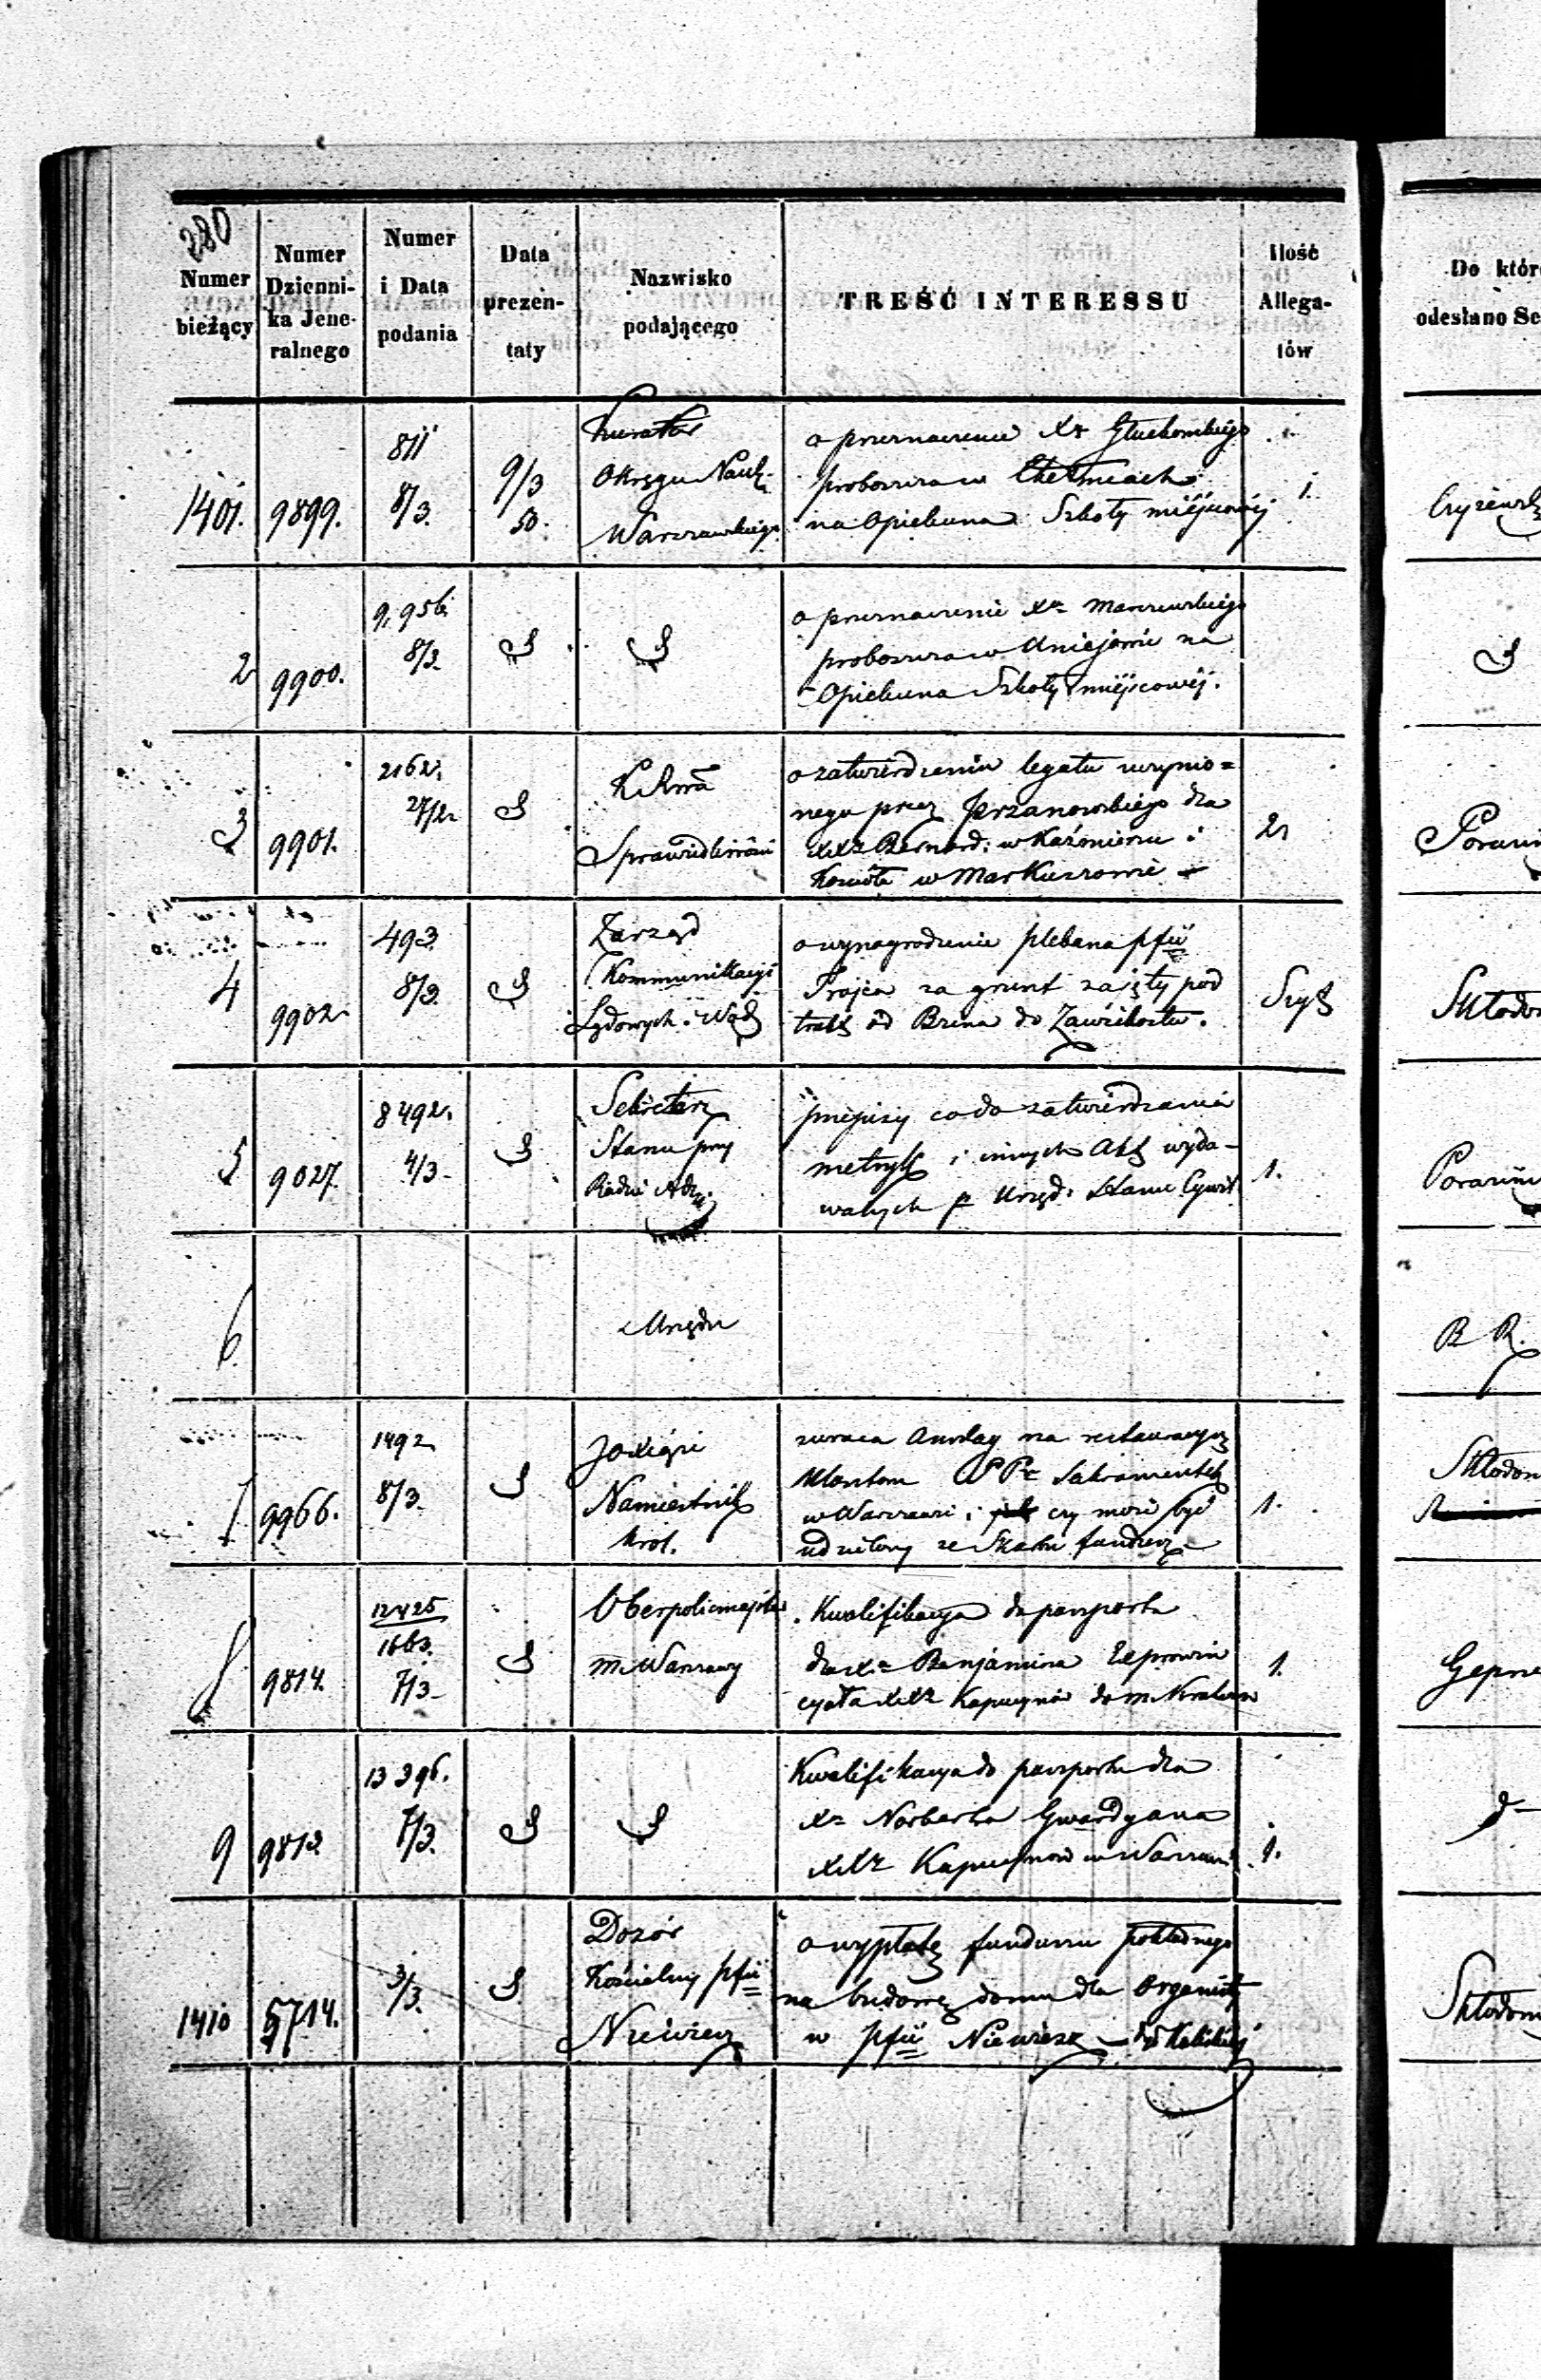 280
Numer
bieżący
Numer
Dzienni-
ka Jene-
ralnego
Numer
i Data
podania
Data
prezen-
taty
Nazwisko
podającego
TREŚĆ INTERESSU
Ilość
Allega-
tów
Do któr
odesłano Se
1401. 9899.
811
8/3.
9/3
50.
Kurator
Okręgu Nauk.
Warszawskiego
o przeznaczenie Xa Głuchowskiego
proboszcza w Chełmcach
na Opiekuna Szkoły miejscowéj
1.
2 9900.
9,956.
8/3.
o przeznaczenie Xa Marszewskiego
proboszcza w Uniejowie na
Opiekuna Szkoły miejscowéj.
3 9901.
2162.
27/2.
K. Rwa
Sprawiedliwości
o zatwierdzenie legatu uczynio=
nego przez Przanowskiego dla
XXz Bernard: w Kaźmierzu i
Kościoła w Markuszowie
2
4 9902
493.
8/3.
Zarząd
Kommunikacyi
Lądowych i Wod
o wynagrodzenie plebana pfii
Trojca za grunt zajęty pod
trakt od Brzna do Zawichostu.
Szyt
Skłodo
5 9027.
8492.
4/3
Sekretarz
Stanu przy
Radzie Adm.
przepisy co do zatwierdzania
metryk i innych Akt wyda-
walych p Urzęd: Stanu Cywil
1.
6.
Urzędu
B R.
7 9966.
1492
8/3.
JO Xiąże
Namiestnik
Król.
zwraca Anszlag na restauracyą
Klasztoru PPn Sakramentek
w Warszawie i czy może być
udzielony ze Skarbu fundusz
1.
Skłodow
8 9814.
12425
1663.
7/3
Oberpolicmajster
m. Warszawy
Kwalifikacya do paszportu
dla Xa Benjamina Exprowin
cyała XXz Kapucynów do m. Krakowa
1.
9 9813
13396.
7/3.
Kwalifikacya do paszportu dla
Xa Norberta Gwardyana
XXz Kapucynów w Warszawie
1.
1410 5714.
3/3.
Dozór
Kościelny pfii
Niewiesz
o wypłatę funduszu pokładnego
na budowę domu dla Organisty
w pfii Niewiesz
Skłodow